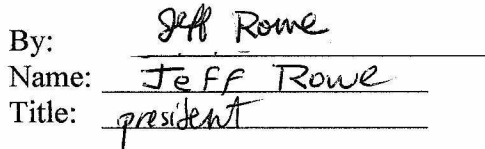 By: Jeff Rowe
Name: Jeff Rowe
Title: president